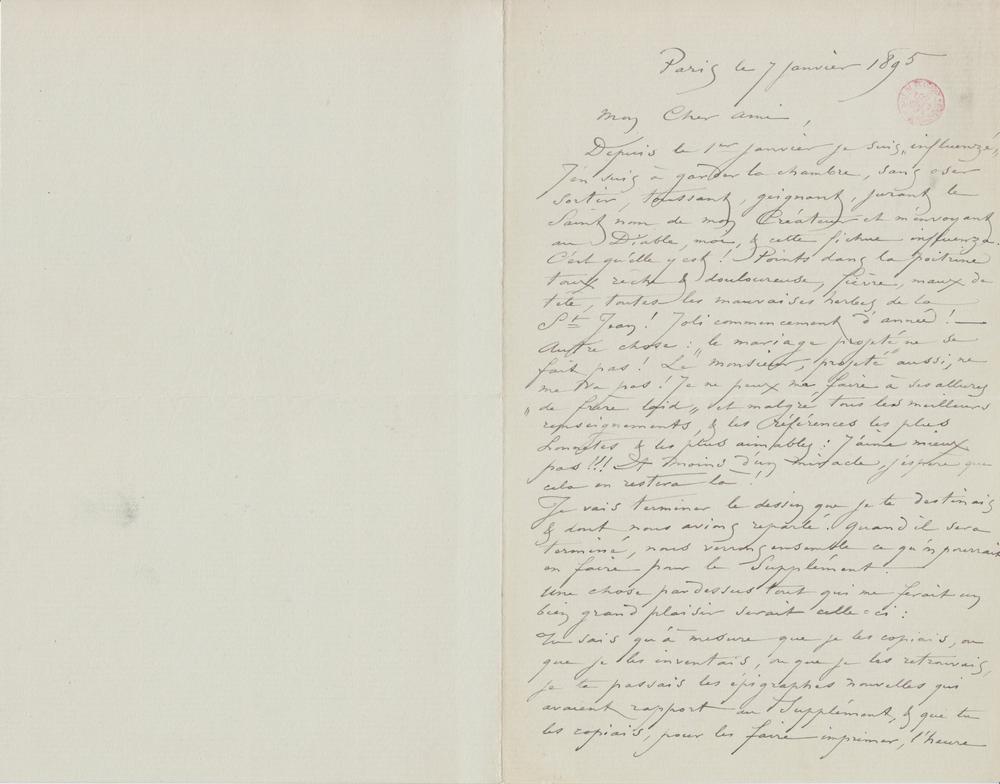 Paris le 7 janvier 1895
Mon Cher ami,
Depuis le 1er janvier je suis „influenzé„
J'en suis à garder la chambre, sans oser
sortir, toussant, geignant, jurant le
Saint nom de mon Créateur et m'envoyant
au Diable, moi, & cette fichue influenza.
C'est qu'elle y est! Points dans la poitrine
toux rèche & douloureuse, fièvre, maux de
tête, toutes les mauvaises herbes de la
St Jean! Joli commencement d'année! —
Autre chose: le mariage projeté ne se
fait pas! Le "monsieur, projeté" aussi, ne
me va pas! Je ne peux me faire à ses allures
„de frère lai„ et malgré tous les meilleurs
renseignements, & les Références les plus
honnêtes & les plus aimables: J'aime mieux
pas!!! A moins d'un miracle, j'espère que
cela en restera là!
Je vais terminer le dessin que je te destinais
& dont nous avions reparlé. Quand il sera
terminé, nous verrons ensemble ce qu'on pourrait
en faire pour le Supplément.
Une chose pardessus tout qui me ferait un
bien grand plaisir serait celle-ci:
Tu sais qu'à mesure que je les copiais, ou
que je les inventais, ou que je les retrouvais,
je te passais les épigraphes nouvelles qui
avaient rapport au Supplément, & que tu
les copiais, pour les faire imprimer, l'heure